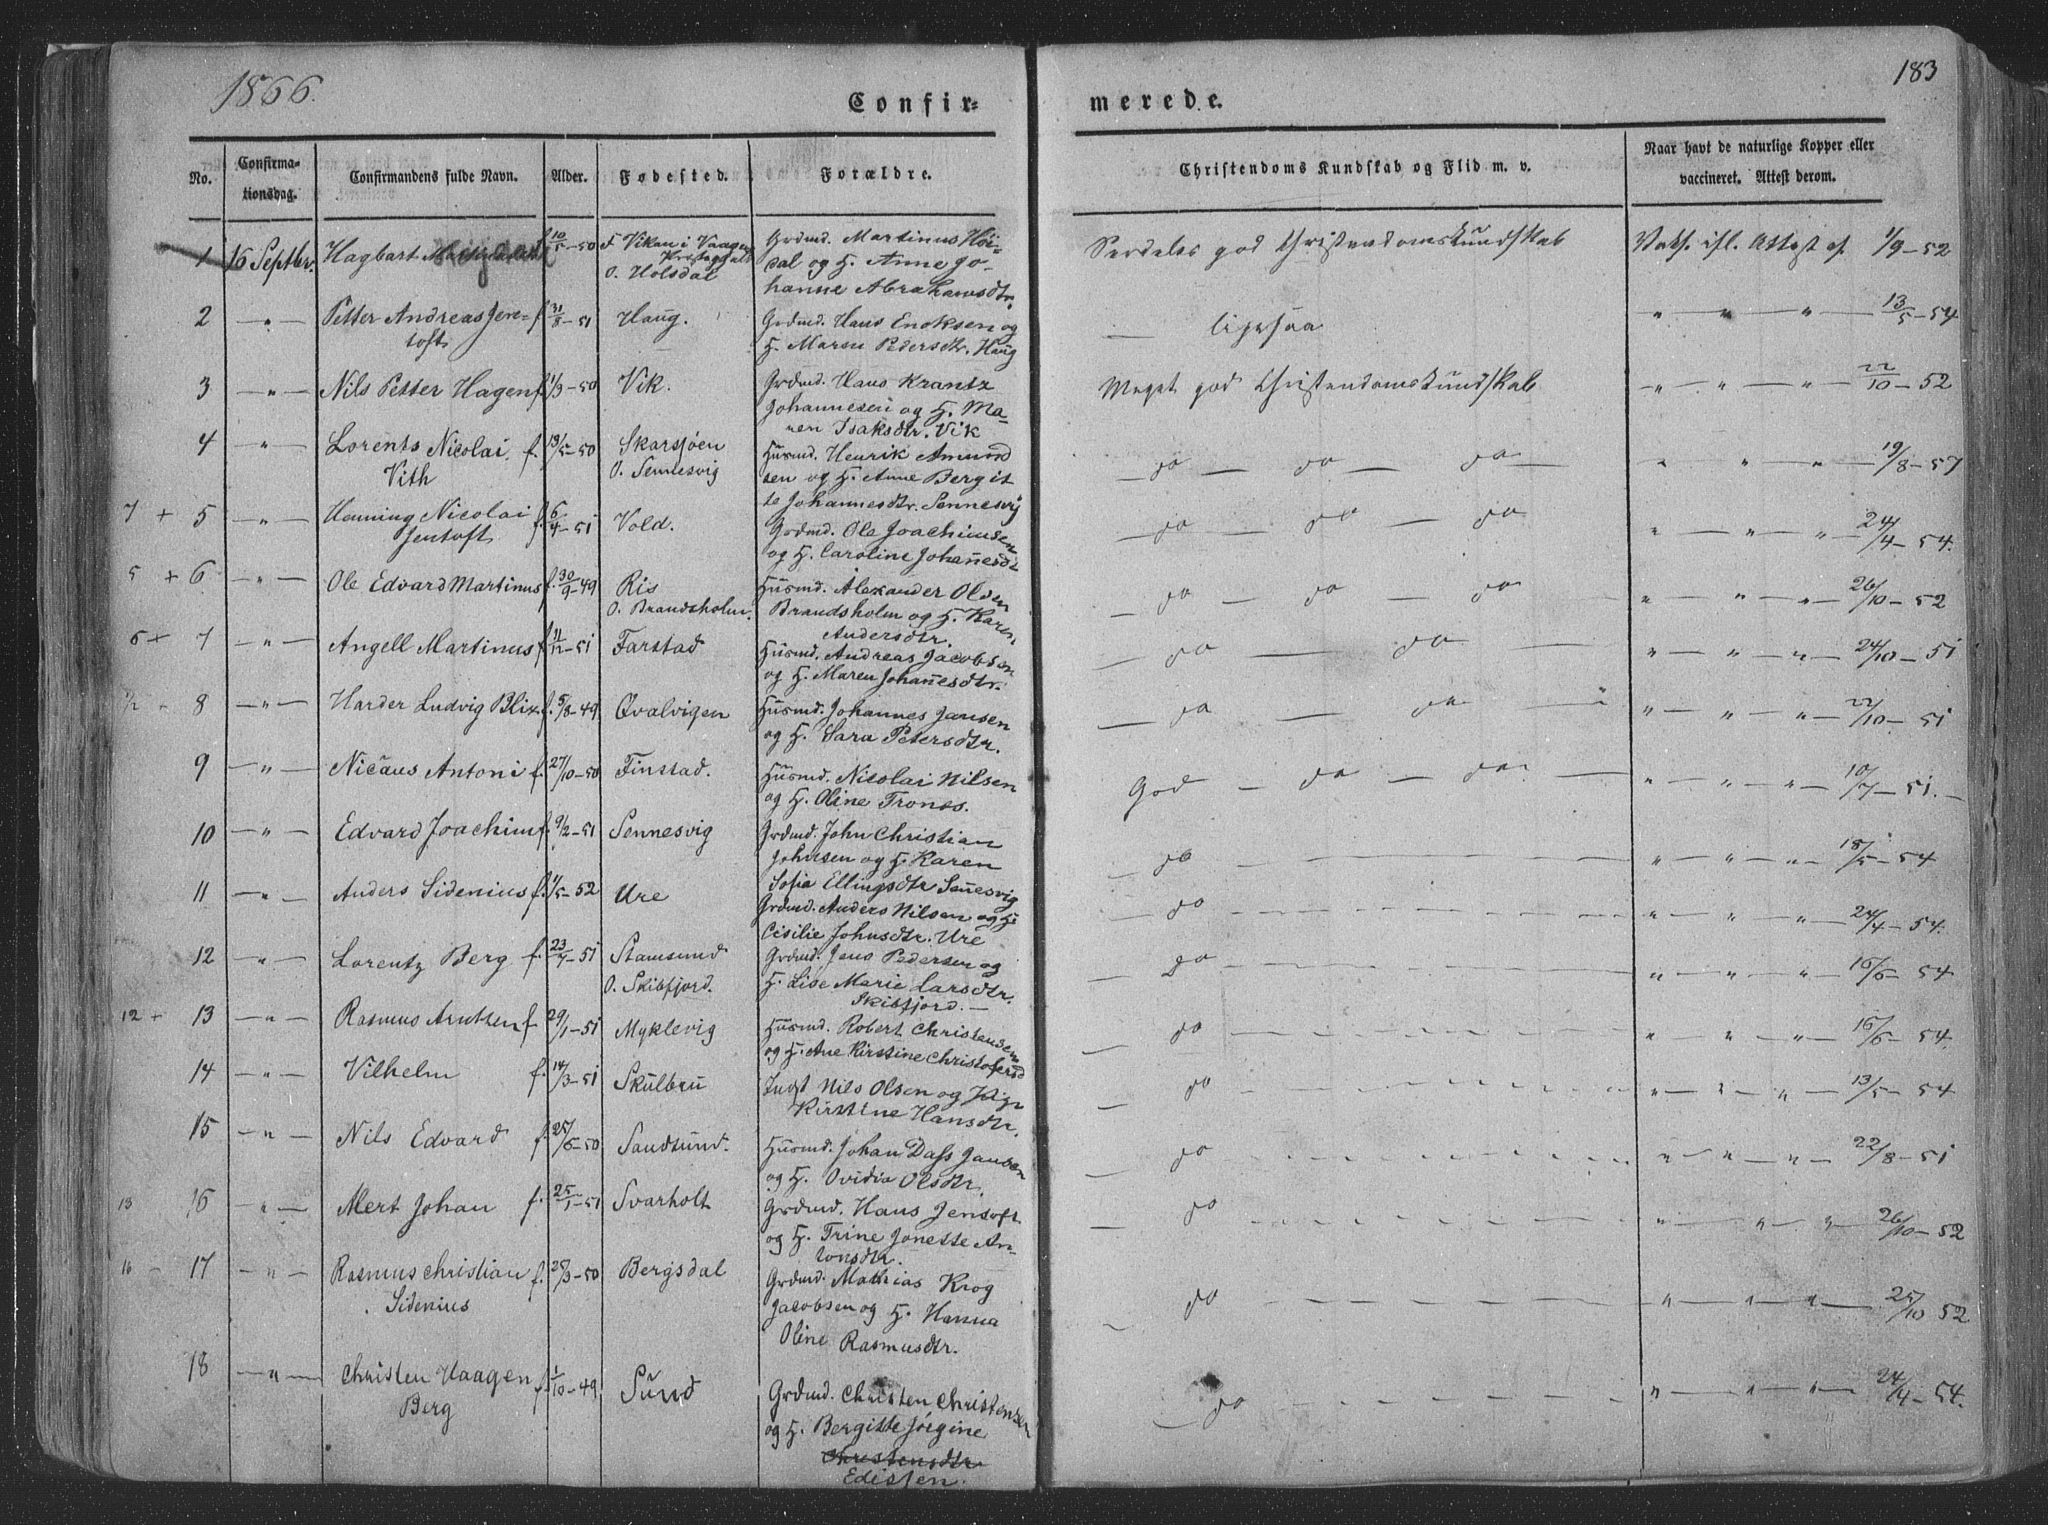 1866.
183
Confir=
merede.
No.
Confirma-
tionsdag.
Confirmandens fulde Navn.
Alder.
Fødested.
Forældre.
Christendoms Kundskab og Flid m. v.
Naar havt de naturlige Kopper eller
vaccineret. Attest derom.
1 16 Septbr. Hagbart f. 10/5-50 F. Vikan i Vaagen Grdmd. Martinus Høi- Serdeles god Christendomskundskab 1/9-52
O. Holsdal
dal og H. Anne Jo-
hanne Abrahamsdtr.
2 -"- Petter Andreas Jen- f. 31/8-51 Haug. Grdmd. Hans Enoksen og — ligesaa " — " — " 13/5-54
toft
H. Maren Pedersdtr. Haug
3 -"- Nils Petter Hagen f. 1/3-50 Vik. Grdmd. Hans Krantz Meget god Christendomskundskab " — " — " 22/10-52
Johannesen og H. Ma-
ren Isaksdtr. Vik
4 -"- Lorents Nicolai f. 13/5-50 Skarsjøen Husmd. Henrik Amund — do — do — do — " " " 19/8-57
Vith
O. Sennesvig
sen og H. Anne Bergit
te Johannesdtr. Sennesvig
7 + 5 -"- Henning Nicolai f. 6/4-51 Vold. Grdmd. Ole Joachimsen — do — do — do " — " — " 24/4-54.
Jentoft
og H. Caroline Johanesdt
5 + 6 -"- Ole Edvard Martinus f. 30/9-49 Ris Husmd. Alexander Olsen — do — do — do " — " — " 26/10-52
O. Brandsholm.
Brandsholm og H. Karen
Andersdtr.
6 + 7 -"- Angell Martinus f. 11/12-51 Farstad Husmd. Andreas Jacobsen — do — do — " — " — " 24/10-51
og H. Maren Johanesdtr.
8 -"- Harder Ludvig Blix f. 5/8-49 Qvalvigen Husmd. Johannes Jansen — do — do " " — " — " 22/10-51
og H. Sara Petersdtr.
9 -"- Nicäus Antoni f. 27/10-50 Finstad. Husmd. Nicolai Nilsen God — do — do — " — " — " 10/7-51.
og H. Oline Trones.
10 -"- Edvard Joachim f. 9/2-51 Sennesvig Grdmd. John Christian — do " — " — " 18/5-54
Johnsen og H. Karen
Sofia Ellingsdtr Senesvig
11 -"- Anders Sidenius f. 1/5-52 Ure Grdmd. Anders Nilsen og H. — do " — " — " 24/4-54.
Cisilie Johnsdtr. Ure
12 -"- Lorentz Berg f. 23/7-51 Stamsund Grdmd. Jens Pedersen og — Do " — " — " 16/6-54.
O. Skifjord.
H. Lise Marie Larsdtr.
Skifjord. —
12 + 13 -"- Rasmus Arntzen f. 29/1-51 Myklevig Husmd. Robert Christensen — do " — " — " 16/6-54.
og H. Ane Kirstine Christofersd
14 -"- Vilhelm f. 14/3-51 Skulbru Indst Nils Olsen og Pige — do " — " — " 13/5-54
Kirstine Hansdtr.
15 -"- Nils Edvard f. 25/6-50 Sandsund. Husmd. Johan Dass Jansen — do " — " — " 22/8-51
og H. Ovidia Olsdtr.
13 16 -"- Mert Johan f. 25/1-51 Svarholt Grdmd. Hans Jensoft — do " — " — " 26/10-52
og H. Trine Jonette An-
tonsdtr.
16 - 17 -"- Rasmus Christian f. 25/3-50 Bergsdal Grdmd. Mathias Krog — do " — " — " 25/10 52
Sidenius
Jacobsen og H. Hanna
Oline Rasmusdtr.
18 -"- Christen Haagen f. 1/10-49 Sund Grdmd. Christen Christensen — do " — " — " 24/4-54.
Berg
og H. Bergitte Jørgine
Christensdtr
Edisten.